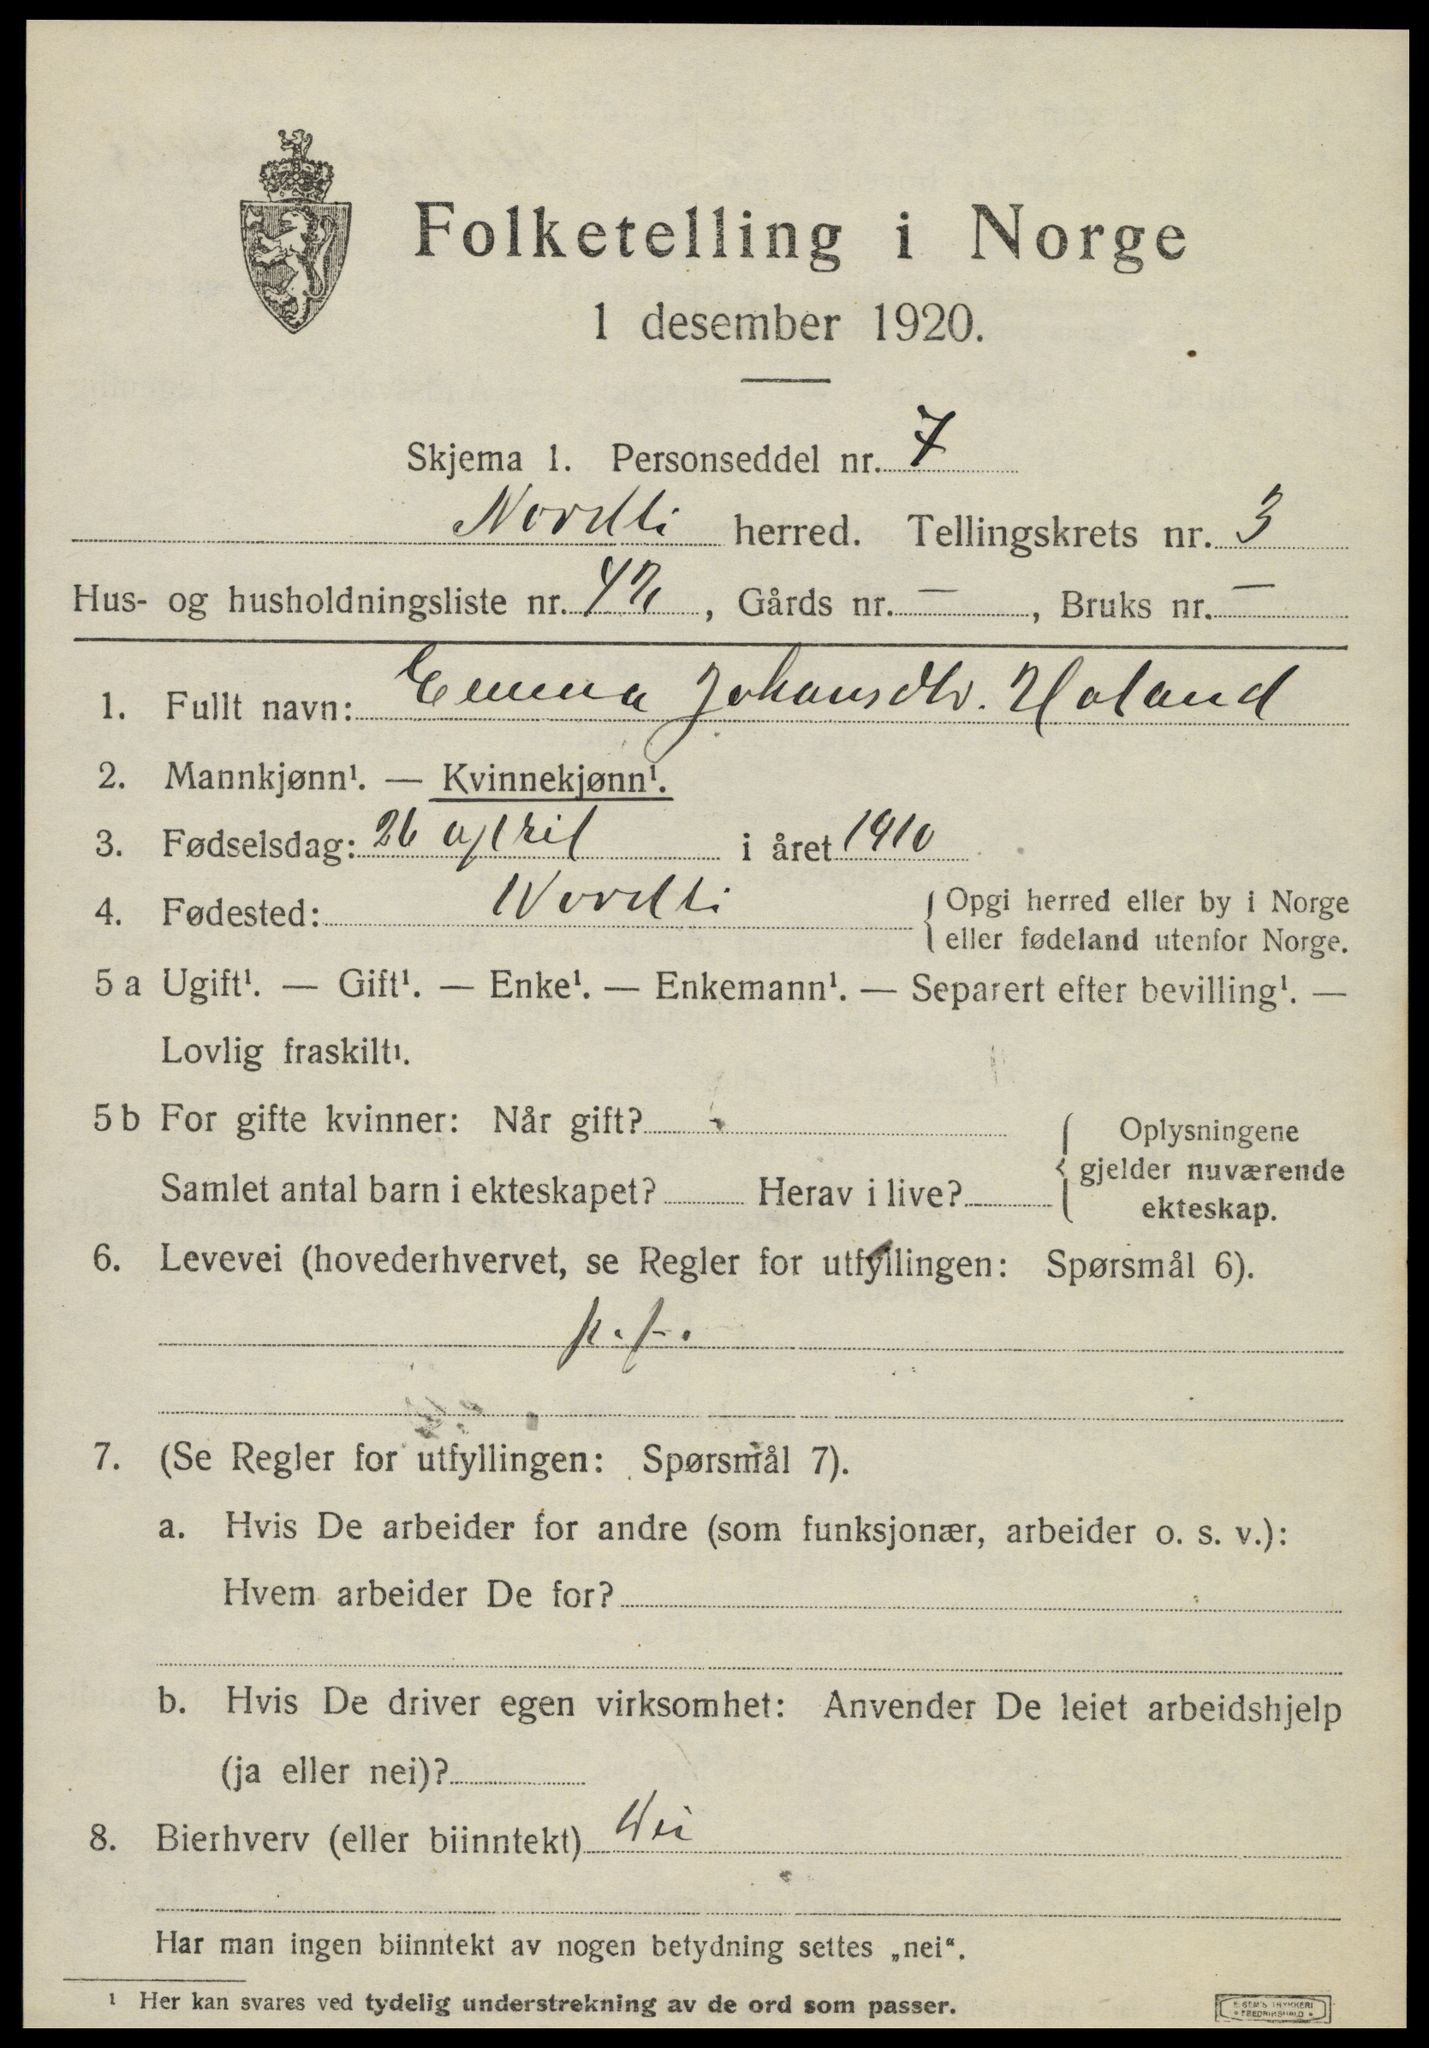 Folketelling i Norge
1 desember 1920.
Skjema 1. Personseddel nr. 7
Nordli herred. Tellingskrets nr. 3
Hus- og husholdningsliste nr. , Gårds nr. — , Bruks nr. —
1. Fullt navn: Emma Johansdtr. Holand
2. Mannkjønn¹. — Kvinnekjønn¹.
3. Fødselsdag: 26 april i året 1910
4. Fødested: Nordli { Opgi herred eller by i Norge
eller fødeland utenfor Norge.
5 a Ugift¹. — Gift¹. — Enke¹. — Enkemann¹. — Separert efter bevilling¹. —
Lovlig fraskilt¹.
5 b For gifte kvinner: Når gift? { Oplysningene
Samlet antal barn i ekteskapet? Herav i live? gjelder nuværende
ekteskap.
6. Levevei (hovederhvervet, se Regler for utfyllingen: Spørsmål 6).
p. f.
7. (Se Regler for utfyllingen: Spørsmål 7).
a. Hvis De arbeider for andre (som funksjonær, arbeider o. s. v.):
Hvem arbeider De for?
b. Hvis De driver egen virksomhet: Anvender De leiet arbeidshjelp
(ja eller nei)?
8. Bierhverv (eller biinntekt) Nei
Har man ingen biinntekt av nogen betydning settes „nei“.
¹ Her kan svares ved tydelig understrekning av de ord som passer.
TRYKKERI
FREDRIKSHALD